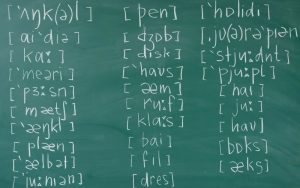 [ˈʌŋk(ə)l] [pen] [ˈhɒlɪdɪ]
[aiˈdɪə] [dʒɒb] [ˌju(ə)rəˈpɪən]
[kaː] [disk] [ˈstjuːdnt]
[ˈmeəri] [ˈhaus] [ˈpjuːpl]
[ˈpɜːsn] [æm] [hai]
[mætʃ] [ruːf] [juː]
[ˈæŋkl] [klaːs] [hav]
[plæn] [bai] [bɒks]
[ˈælbət] [fil] [æks]
[ˈjuːnɪən] [dres]